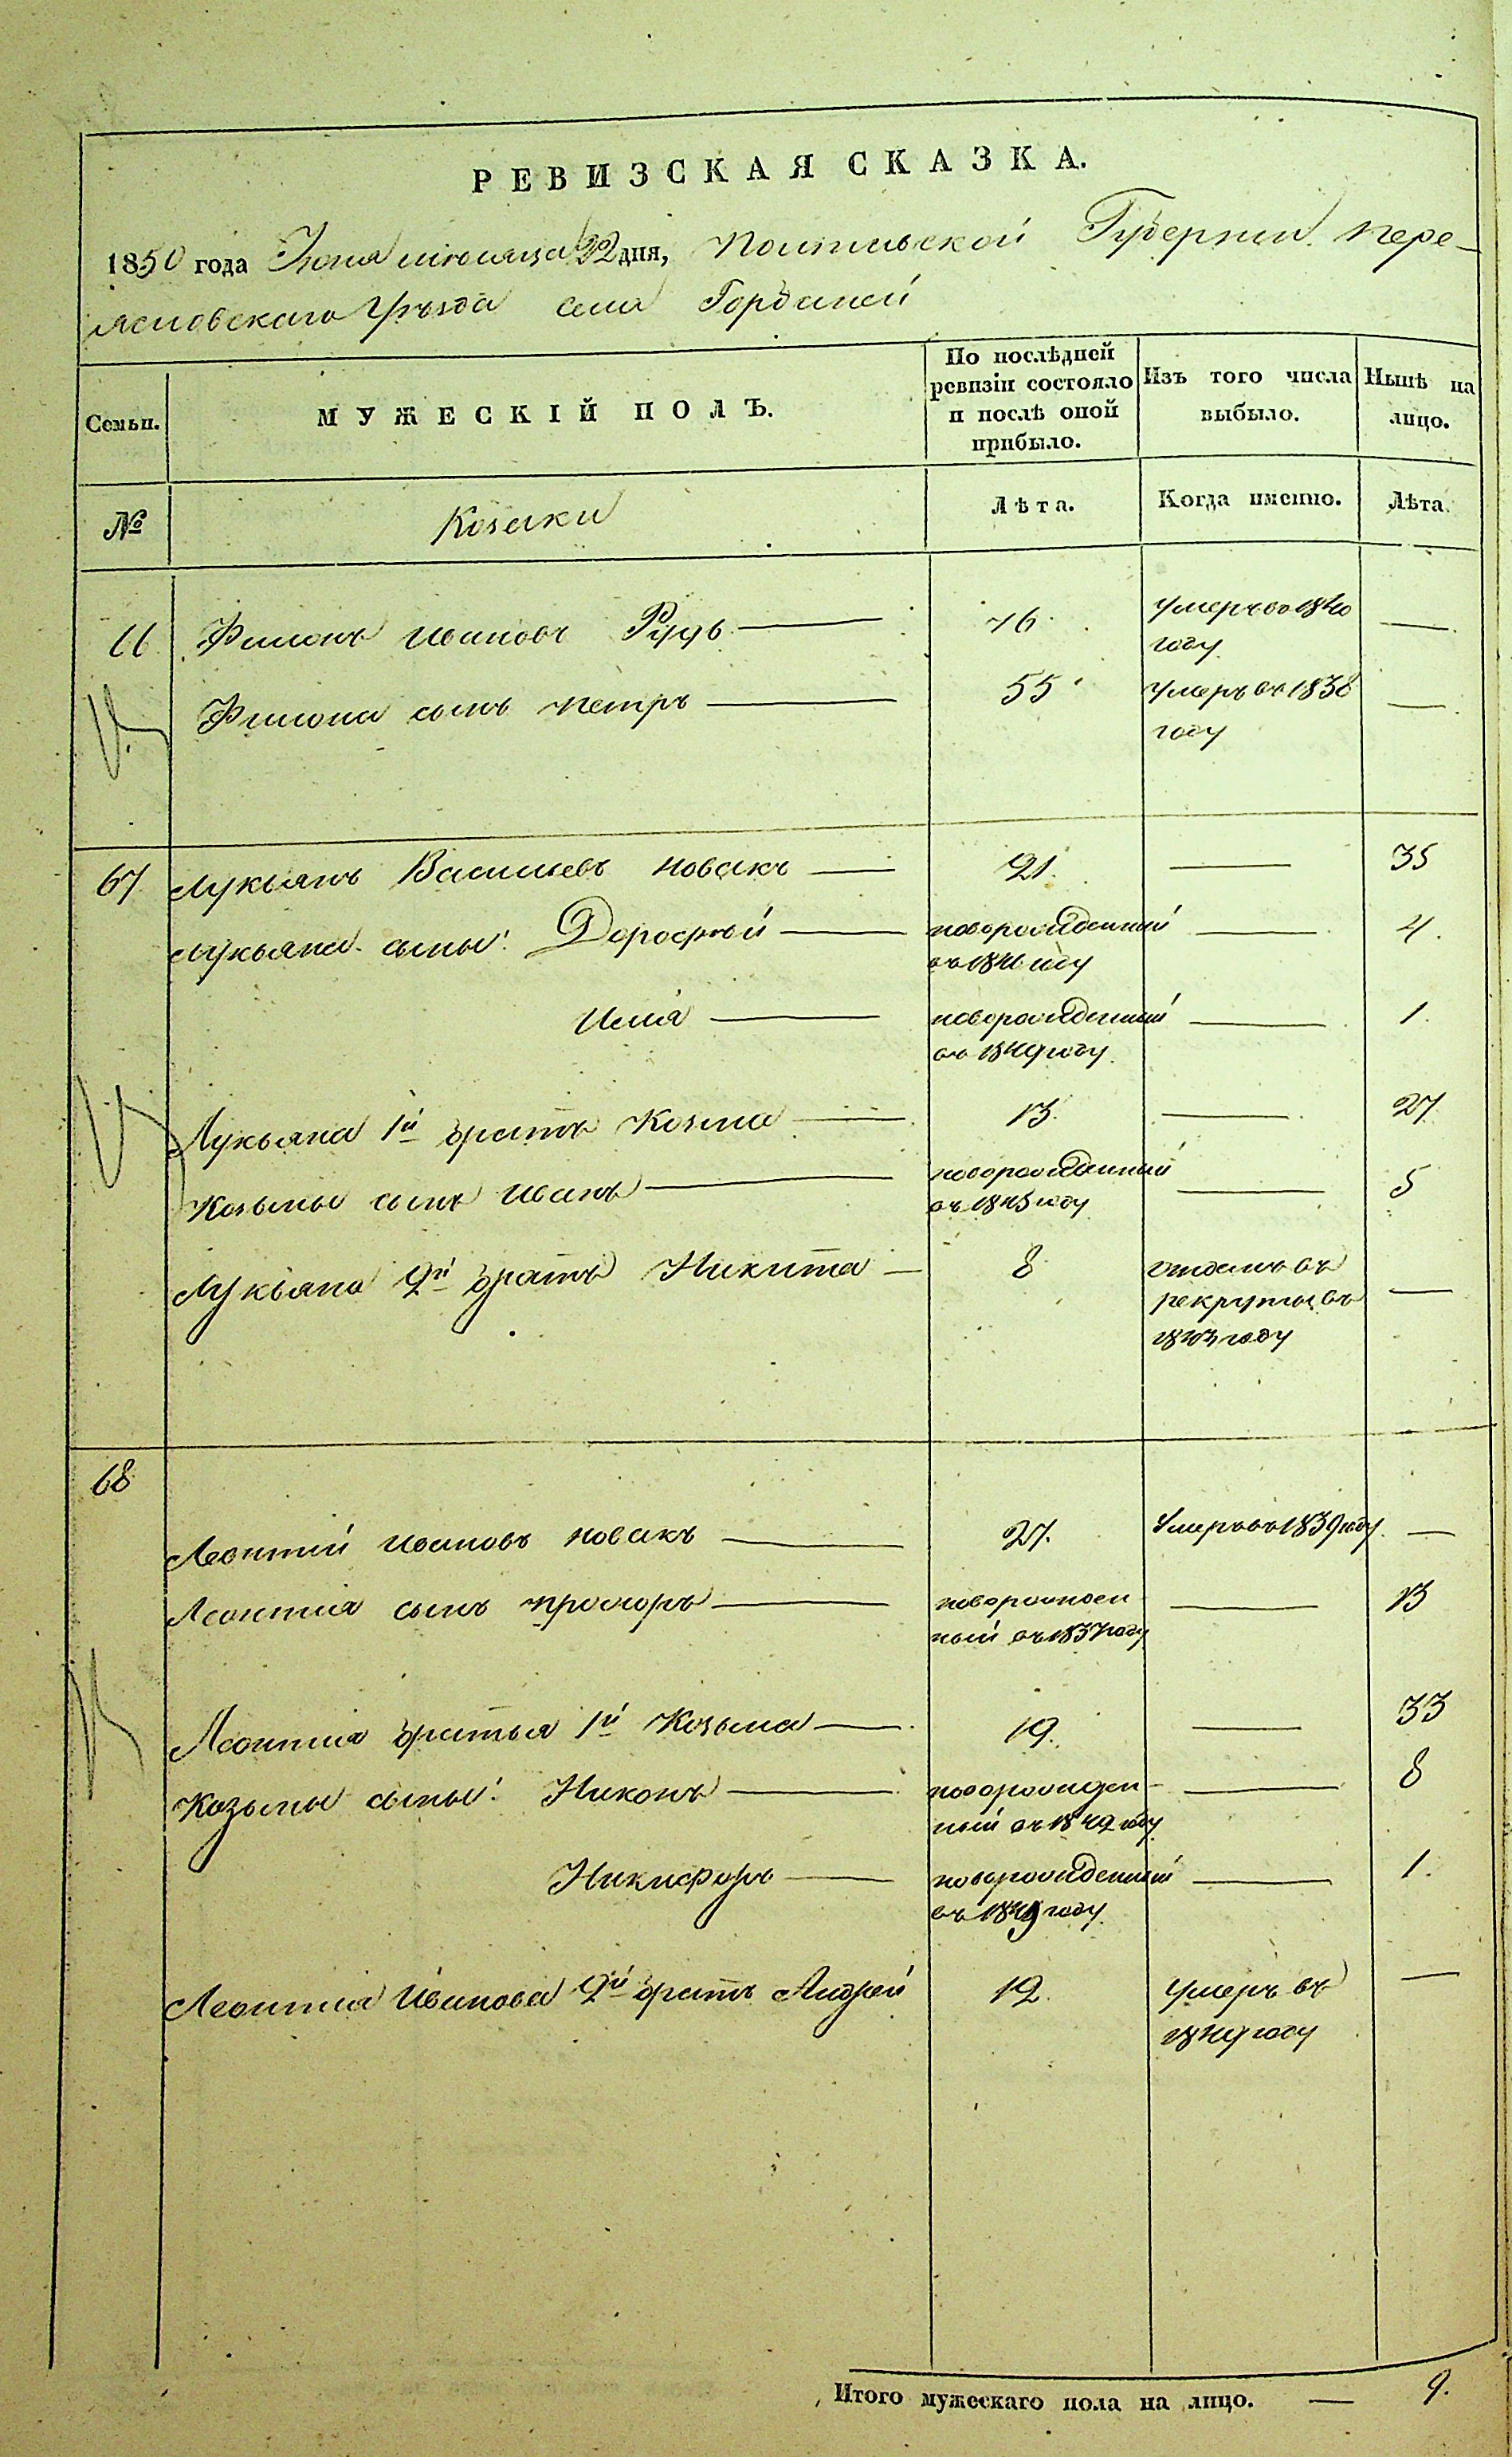 РЕВИЗСКАЯ СКАЗКА.
1850 года Іюня мѣсяца 22 дня, Полтавской Губерніи Пере-
яславскаго Уѣзда села Гордашей
Семьи.
МУЖЕСКІЙ ПОЛЪ.
По послѣдней ревизіи состояло и послѣ оной прибыло.
Изъ того числа выбыло.
Нынѣ на лицо.
№
Козаки
Лѣта.
Когда именно.
Лѣта.
66 Филонъ Ивановъ 76 умеръ въ 1840
году
Филона сынъ Петръ — 55 умеръ въ 1838 —
году
67 Лукьянъ Васильевъ Новакъ — 21. — 35
Лукьяна сыны: Дорофѣй — новорожденный — 4.
въ 1846 году
Илія — новорожденный — 1.
въ 1849 году
Лукьяна 1й братъ Козма — 13. — 27
Козьмы сынъ Иванъ — новорожденный — 5
въ 1845 году
Лукьяна 2й братъ Никита — 8 отданъ въ
рекруты въ —
году
68
Леонтій Ивановъ Новакъ — 27. Умеръ въ 1839 году. —
Леонтія сынъ Прохоръ — новорожден-
ный въ 1837 году — 13
Леонтія братья 1й Козьма — 19. — 33
Козьмы сыны: Никонъ — новорожден- — 8
ный въ 1842 году
Никифоръ — новорожденный — 1.
въ 1849 году
Леонтія Иванова 2й братъ Андрей 12. умеръ въ —
1849 году
Итого мужескаго пола на лицо. — 9.